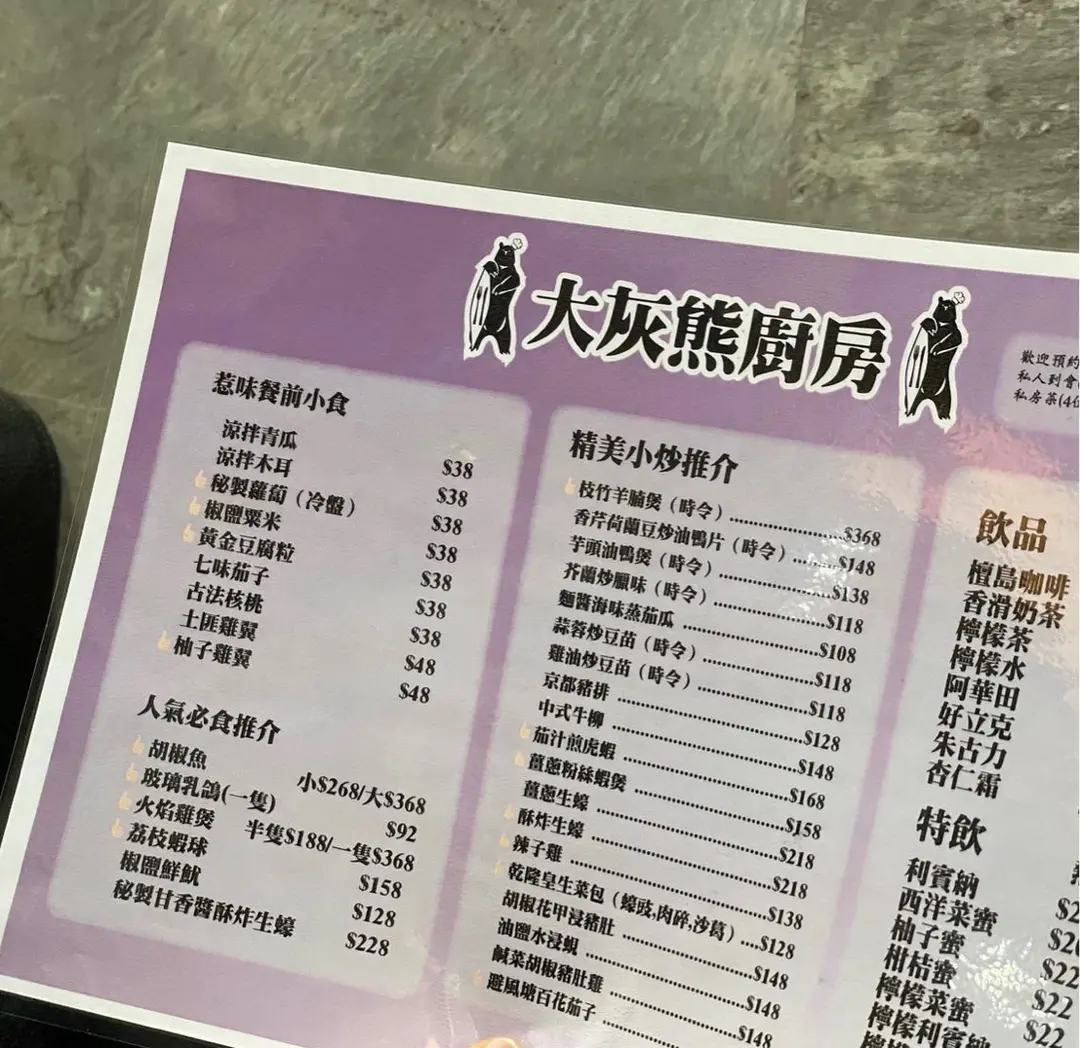 大灰熊廚房
歡迎預約
私人到會
私房菜(4位
惹味餐前小食
涼拌青瓜 $38
涼拌木耳 $38
秘製蘿蔔（冷盤） $38
椒鹽粟米 $38
黃金豆腐粒 $38
七味茄子 $38
古法核桃 $38
土匪雞翼 $48
柚子雞翼 $48
人氣必食推介
胡椒魚 小$268/大$368
玻璃乳鴿(一隻) $92
火焰雞煲 半隻$188/一隻$368
荔枝蝦球 $158
椒鹽鮮魷 $128
秘製甘香醬酥炸生蠔 $228
精美小炒推介
枝竹羊腩煲（時令）$368
香芹荷蘭豆炒油鴨片（時令）$148
芋頭油鴨煲（時令）$138
芥蘭炒臘味（時令）$118
麵醬海味蒸茄瓜 $108
蒜蓉炒豆苗（時令）$118
雞油炒豆苗（時令）$118
京都豬排 $128
中式牛柳 $148
茄汁煎虎蝦 $168
薑蔥粉絲蝦煲 $158
薑蔥生蠔 $218
酥炸生蠔 $218
辣子雞 $138
乾隆皇生菜包（蠔豉,肉碎,沙葛）$128
胡椒花甲浸豬肚 $148
油鹽水浸蜆 $148
鹹菜胡椒豬肚雞 $148
避風塘百花茄子
飲品
檀島咖啡
香滑奶茶
檸檬茶
檸檬水
阿華田
好立克
朱古力
杏仁霜
特飲
利賓納
西洋菜蜜
柚子蜜 $22
柑桔蜜 $22
檸檬菜蜜 $22
檸檬利賓納